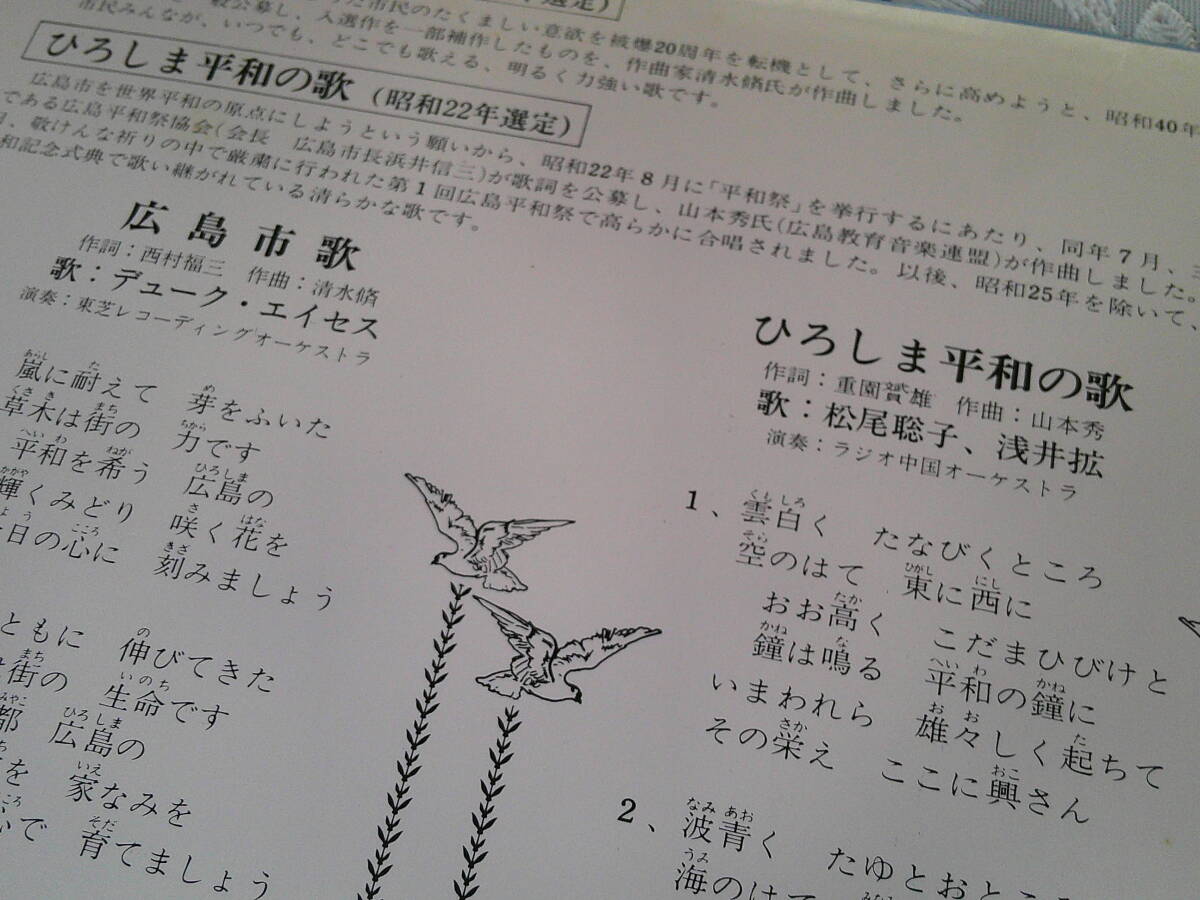 選定）
市民のたくましい意欲を被爆20周年を転機として、さらに高めようと、昭和40年
般公募し、入選作を一部補作したものを、作曲家清水脩氏が作曲しました。
市民みんなが、いつでも、どこでも歌える、明るく力強い歌です。
ひろしま平和の歌（昭和22年選定）
広島市を世界平和の原点にしようという願いから、昭和22年8月に「平和祭」を挙行するにあたり、同年7月、主
である広島平和祭協会（会長 広島市長浜井信三）が歌詞を公募し、山本秀氏（広島教育音楽連盟）が作曲しました。
敬けんな祈りの中で厳粛に行われた第1回広島平和祭で高らかに合唱されました。以後、昭和25年を除いて、
和記念式典で歌い継がれている清らかな歌です。
広島市歌
作詞：西村福三 作曲：清水脩
歌：デューク・エイセス
演奏：東芝レコーディングオーケストラ
嵐に耐えて 芽をふいた
草木は街の 力です
平和を希う 広島の
輝くみどり 咲く花を
日の心に 刻みましょう
ともに 伸びてきた
街の 生命です
都 広島の
を 家なみを
で 育てましょう
ひろしま平和の歌
作詞：重園贇雄 作曲：山本秀
歌：松尾聡子、浅井拡
演奏：ラジオ中国オーケストラ
1、雲白く たなびくところ
空のはて 東に西に
おお高く こだまひびけと
鐘は鳴る 平和の鐘に
いまわれら 雄々しく起ちて
その栄え ここに興さん
2、波青く たゆとおところ
海のはて